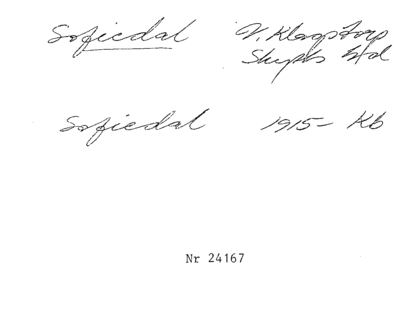 Sofiedal V. Klagstorp
Skytts hd
Sofiedal 1915- Kb
Nr 24167